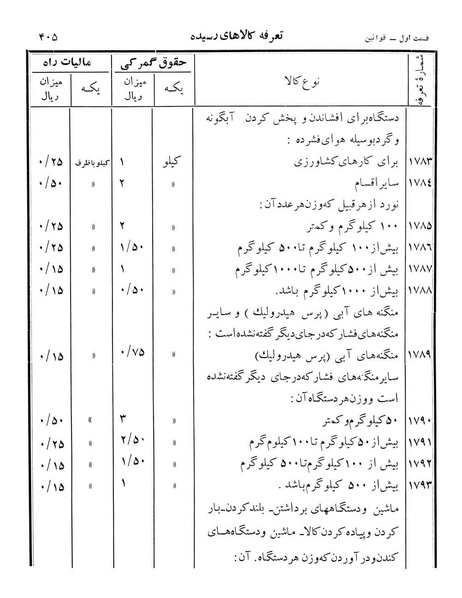 قسمت اول ــ قوانین
تعرفه کالاهای رسیده
۴۰۵
شمارهٔ تعرفه
نوع کالا
حقوق گمرکی
مالیات راه
یکه
میزان ریال
یکه
میزان ریال
دستگاه برای افشاندن و پخش کردن آبگونه
وگرد بوسیله هوای فشرده :
۱۷۸۳ برای کارهای کشاورزی کیلو ۱ کیلو باظرف ۰/۲۵
۱۷۸۴ سایر اقسام » ۲ » ۰/۵۰
نورد از هر قبیل که وزن هر عدد آن :
۱۷۸۵ ۱۰۰ کیلوگرم و کمتر » ۲ » ۰/۲۵
۱۷۸۶ بیش از ۱۰۰ کیلوگرم تا ۵۰۰ کیلوگرم » ۱/۵۰ » ۰/۲۵
۱۷۸۷ بیش از ۵۰۰ کیلوگرم تا ۱۰۰۰ کیلوگرم » ۱ » ۰/۱۵
۱۷۸۸ بیش از ۱۰۰۰ کیلوگرم باشد. » ۰/۵۰ » ۰/۱۵
منگنه های آبی (پرس هیدرولیك ) و سایر
منگنه‌های فشار که در جای دیگر گفته نشده است :
۱۷۸۹ منگنه‌های آبی (پرس هیدرولیك) » ۰/۷۵ » ۰/۱۵
سایر منگنه‌های فشار که در جای دیگر گفته نشده
است و وزن هر دستگاه آن :
۱۷۹۰ ۵۰ کیلوگرم و کمتر » ۳ » ۰/۵۰
۱۷۹۱ بیش از ۵۰ کیلوگرم تا ۱۰۰ کیلوم گرم » ۲/۵۰ » ۰/۲۵
۱۷۹۲ بیش از ۱۰۰ کیلوگرم تا ۵۰۰ کیلوگرم » ۱/۵۰ » ۰/۱۵
۱۷۹۳ بیش از ۵۰۰ کیلوگرم باشد . » ۱ » ۰/۱۵
ماشین و دستگاههای برداشتن ـ بلند کردن ـ بار
کردن و پیاده کردن کالا ـ ماشین و دستگاه‌های
کندن و در آوردن که وزن هر دستگاه . آن :